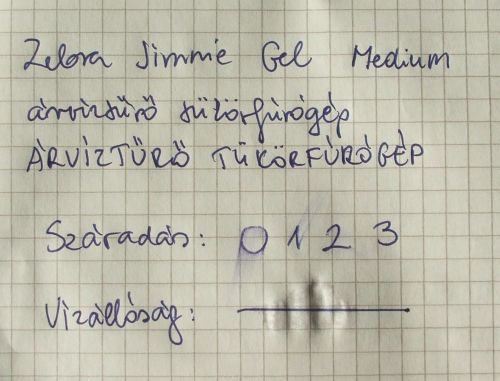 Zebra Jimnie Gel Medium
árvíztűrő tükörfúrógép
ÁRVÍZTŰRŐ TÜKÖRFÚRÓGÉP
Száradás: 0 1 2 3
Vízállóság: